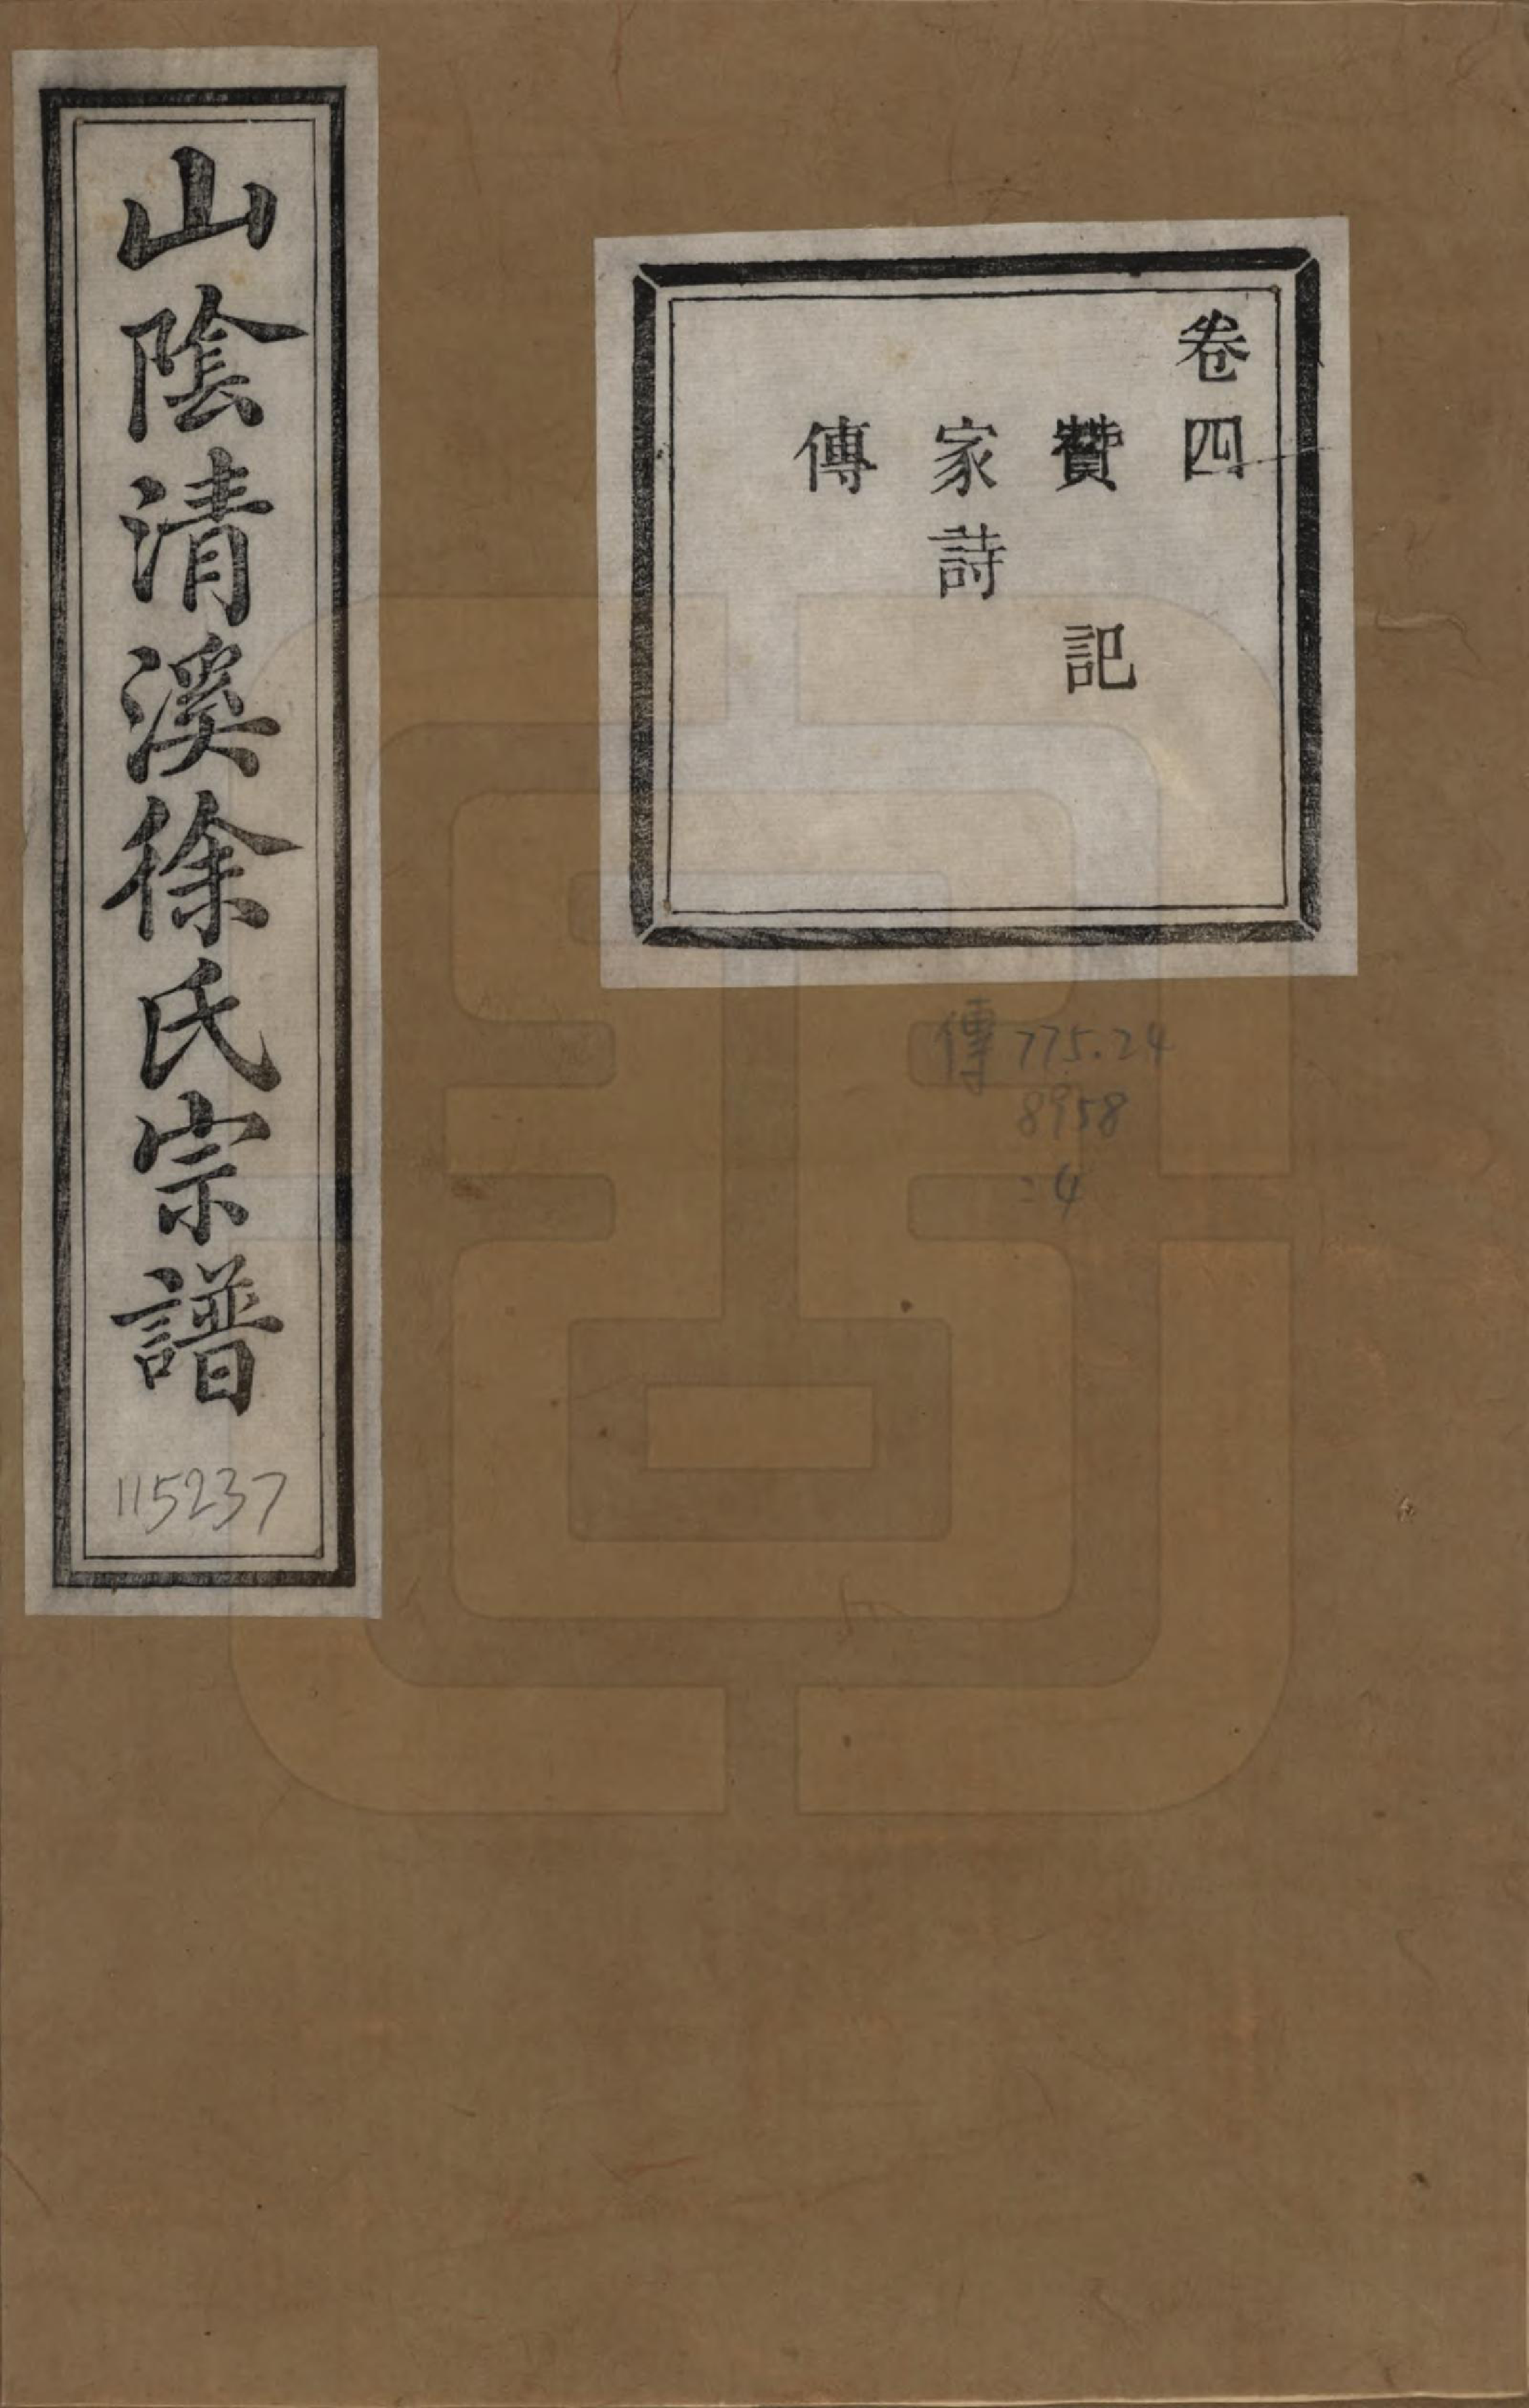 卷四
贊　記
家詩
傳
山陰清溪徐氏宗譜
115237
傳 775.24
8958
:4